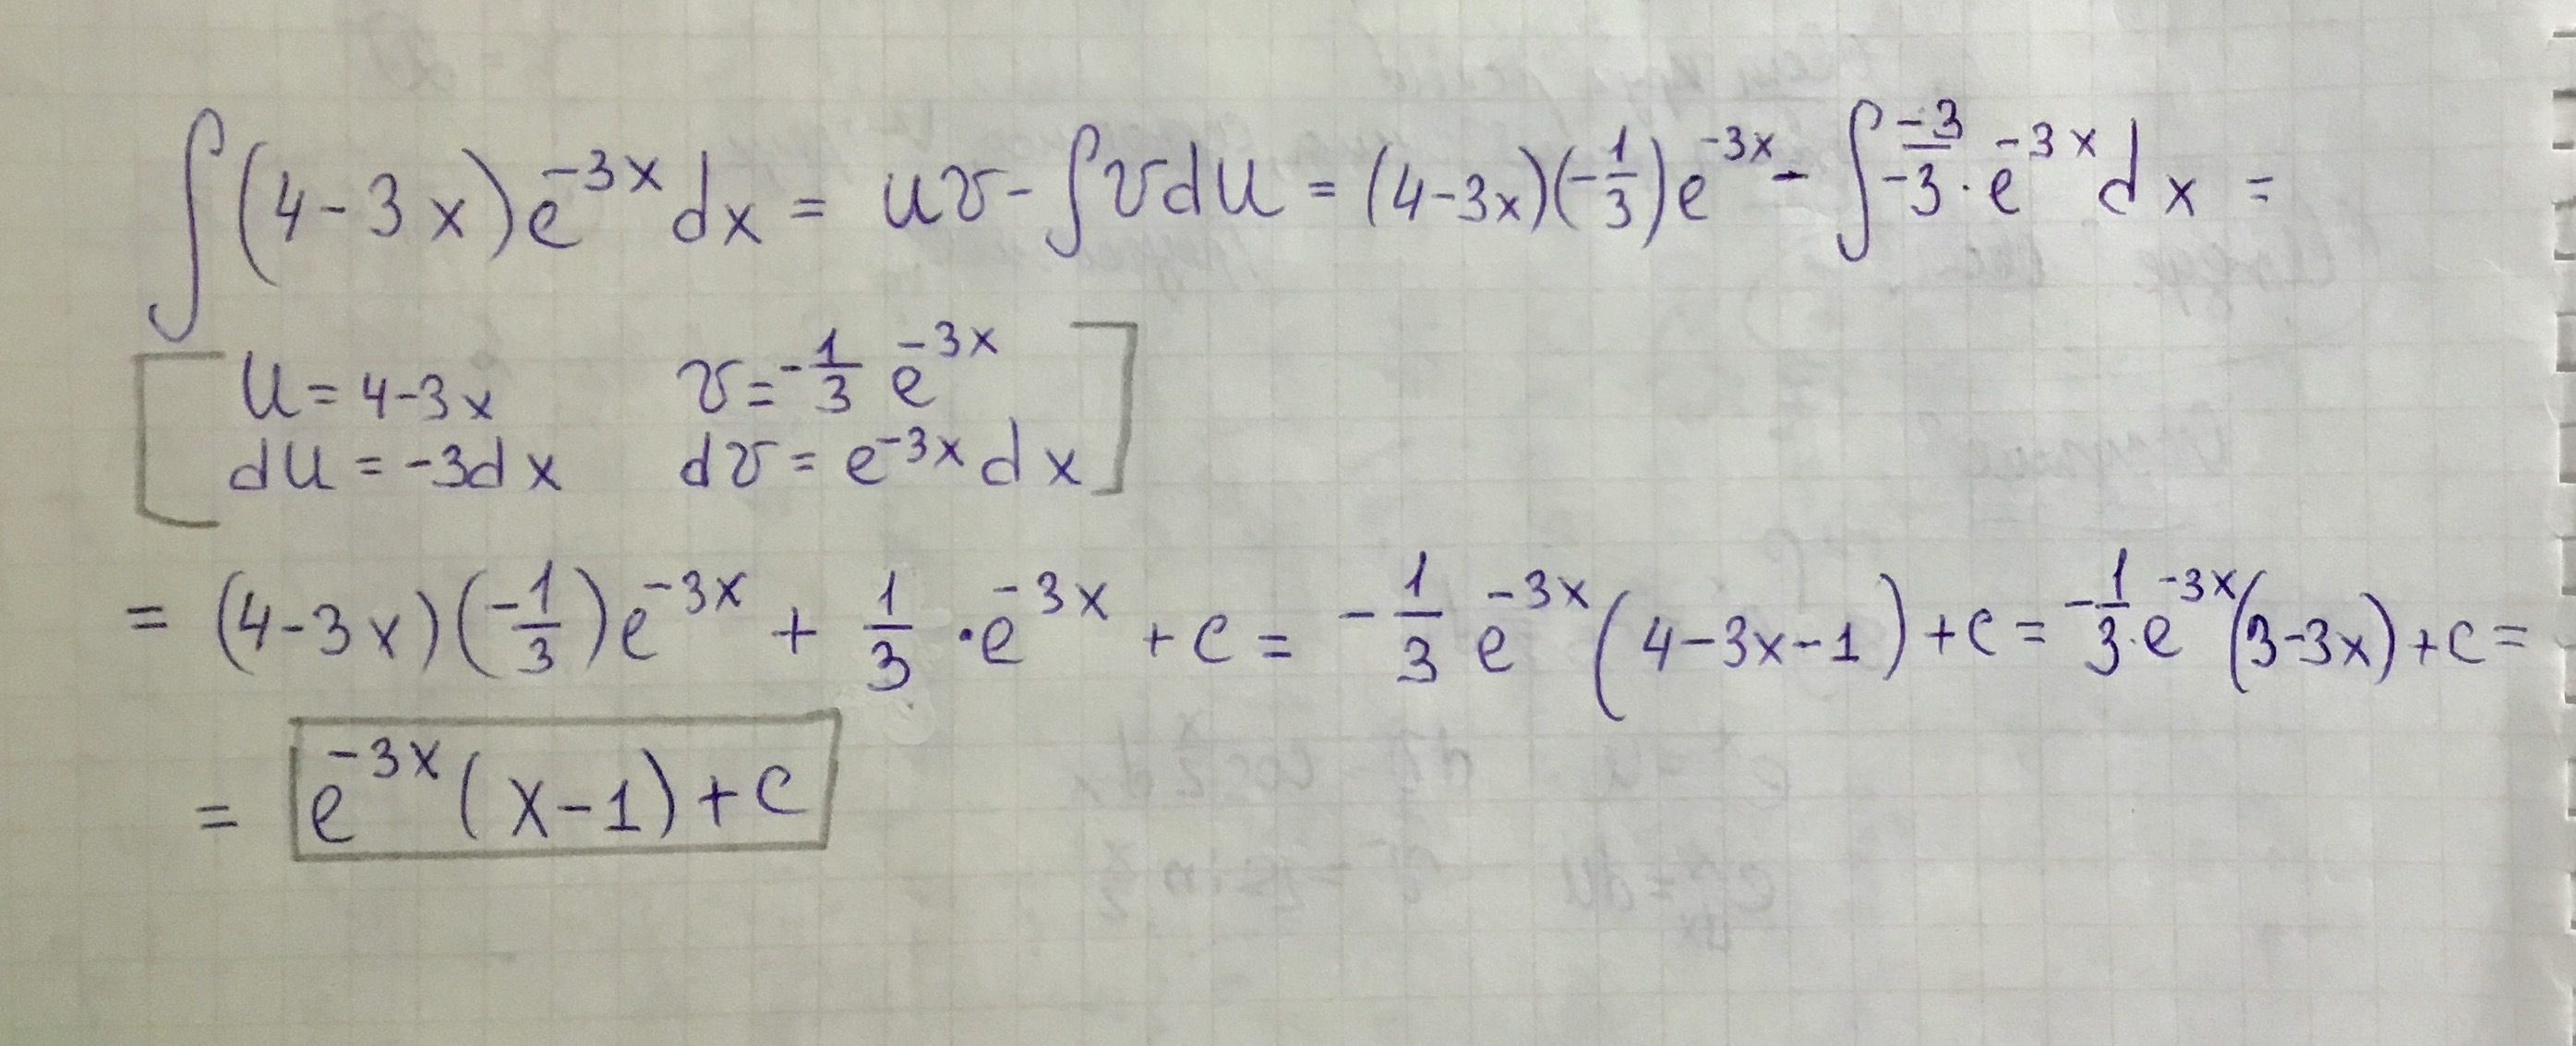 ∫(4-3x)e^{-3x}dx = uv-∫vdu = (4-3x)(-\frac{1}{3})e^{-3x} - ∫\frac{-3}{-3}·e^{-3x}dx =
[u=4-3x v=-\frac{1}{3}e^{-3x}
du=-3dx dv=e^{-3x}dx]
= (4-3x)(-\frac{1}{3})e^{-3x} + \frac{1}{3}·e^{-3x} + c = -\frac{1}{3}e^{-3x}(4-3x-1)+c = -\frac{1}{3}·e^{-3x}(3-3x)+c =
= e^{-3x}(x-1)+c